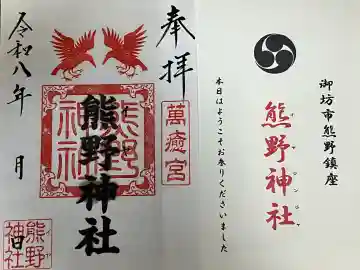 御坊市熊野鎮座
熊野神社
本日はようこそお参りくださいました
奉拝
萬癒宮
熊野神社
熊野神社
令和八年 月 日
熊野神社